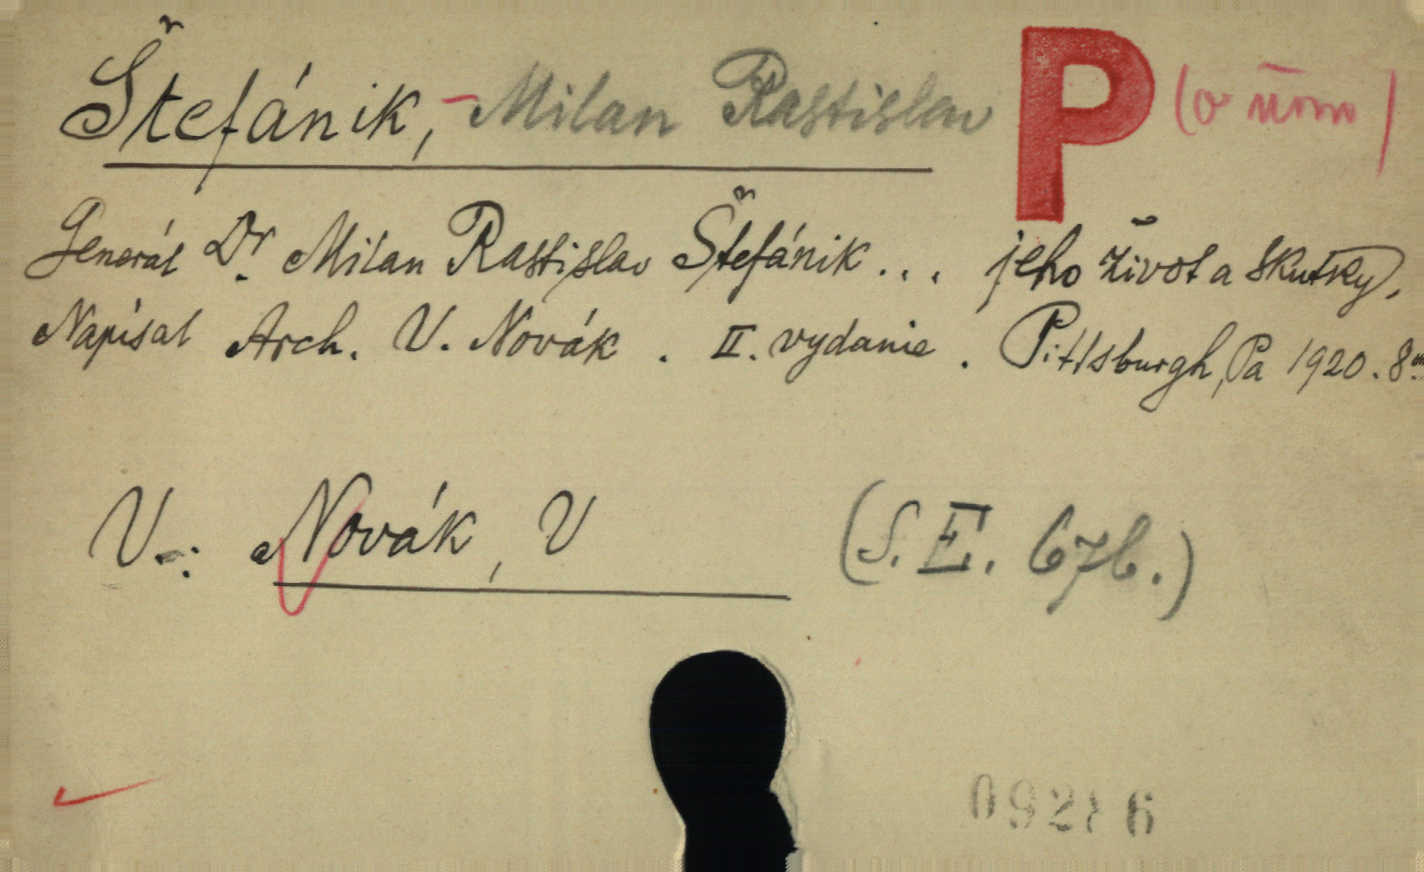 Štefánik, - Milan Rastislav P (o ňom)
Generál Dr. Milan Rastislav Štefánik... jeho život a skutky.
Napísal Arch. V. Novák. II. vydanie. Pittsburgh, Pa 1920. 8º
V.: Novák, V (S. E. 676.)